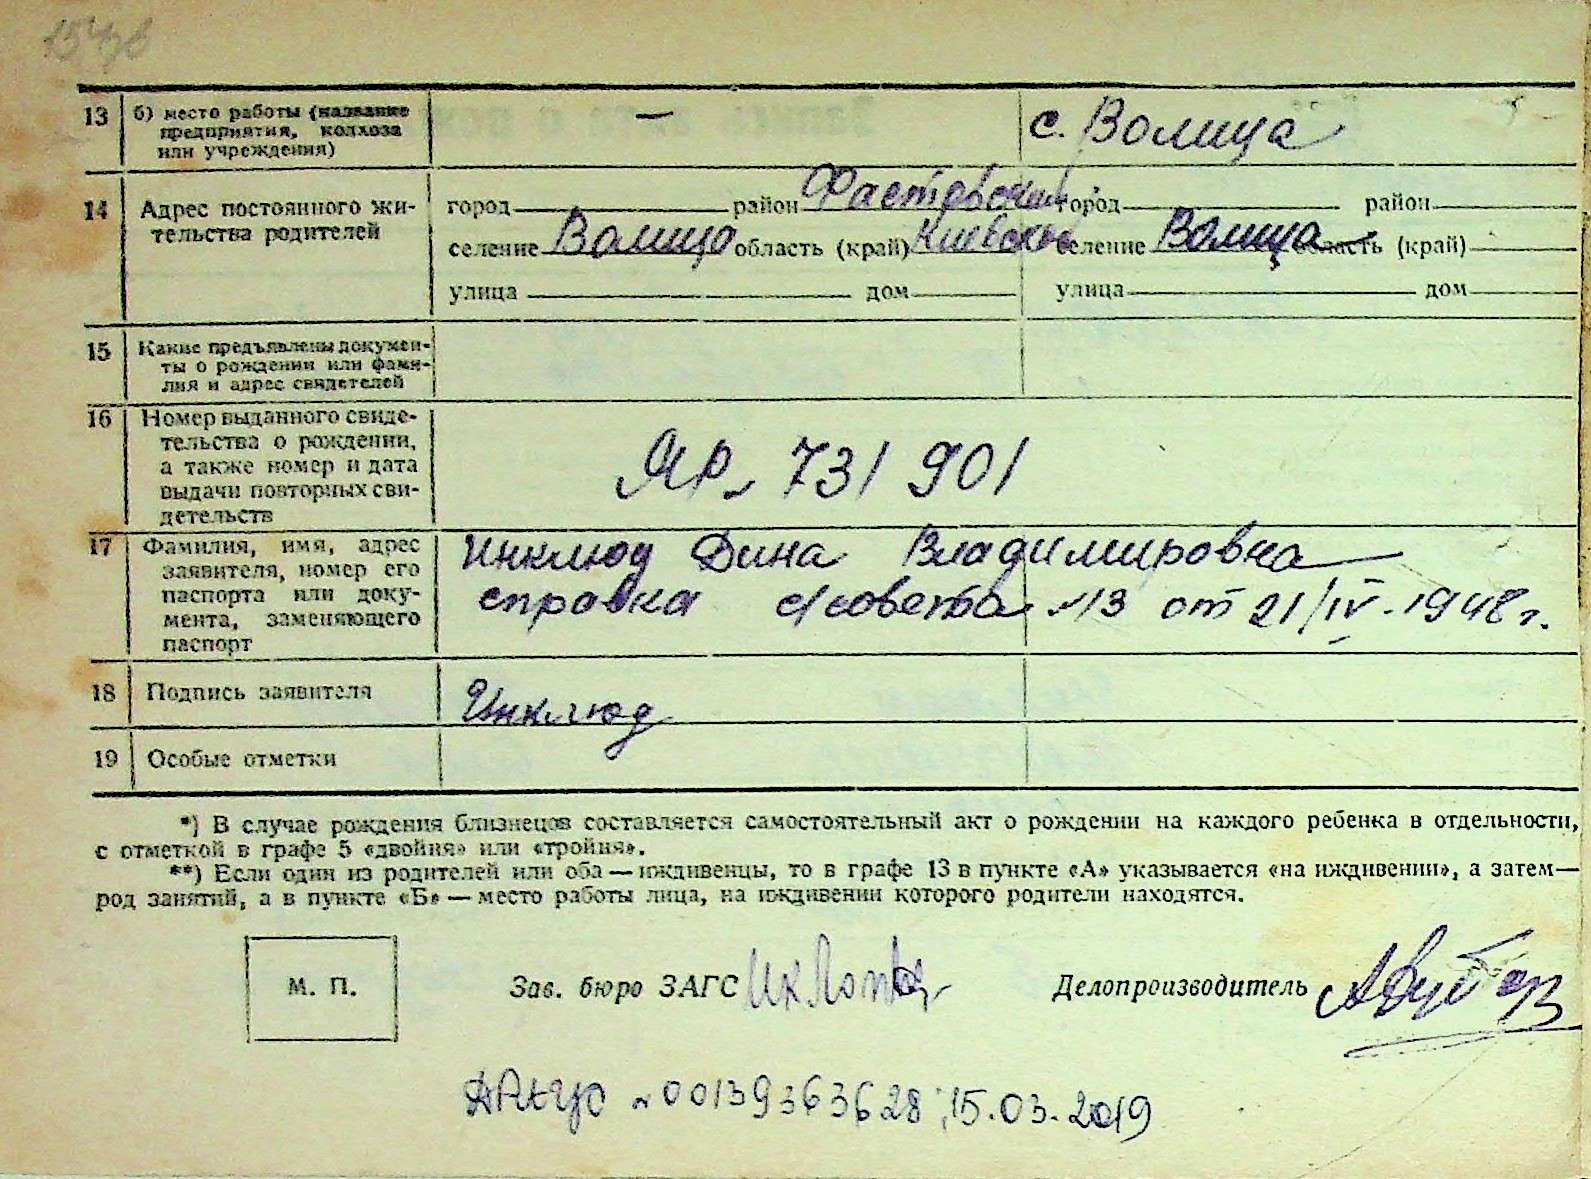 13 б) место работы (название — с. Волица
предприятия, колхоза
или учреждения)
14 Адрес постоянного жи-
тельства родителей
город район Фастовский город район
селение Волица область (край) Киевская селение Волица область (край)
улица дом улица дом
15 Какие предъявлены докумен-
ты о рождении или фами-
лия и адрес свидетелей
16 Номер выданного свиде-
тельства о рождении,
а также номер и дата
выдачи повторных сви-
детельств
ЯР № 731901
17 Фамилия, имя, адрес
заявителя, номер его
паспорта или доку-
мента, заменяющего
паспорт
Инклюд Дина Владимировна
справка с/совета №13 от 21/IV-1948г.
18 Подпись заявителя Инклюд
19 Особые отметки
*) В случае рождения близнецов составляется самостоятельный акт о рождении на каждого ребенка в отдельности,
с отметкой в графе 5 «двойня» или «тройня».
**) Если один из родителей или оба — иждивенцы, то в графе 13 в пункте «А» указывается «на иждивении», а затем —
род занятий, а в пункте «Б» — место работы лица, на иждивении которого родители находятся.
М. П. Зав. бюро ЗАГС Делопроизводитель
№ 00139363628 15.03.2019